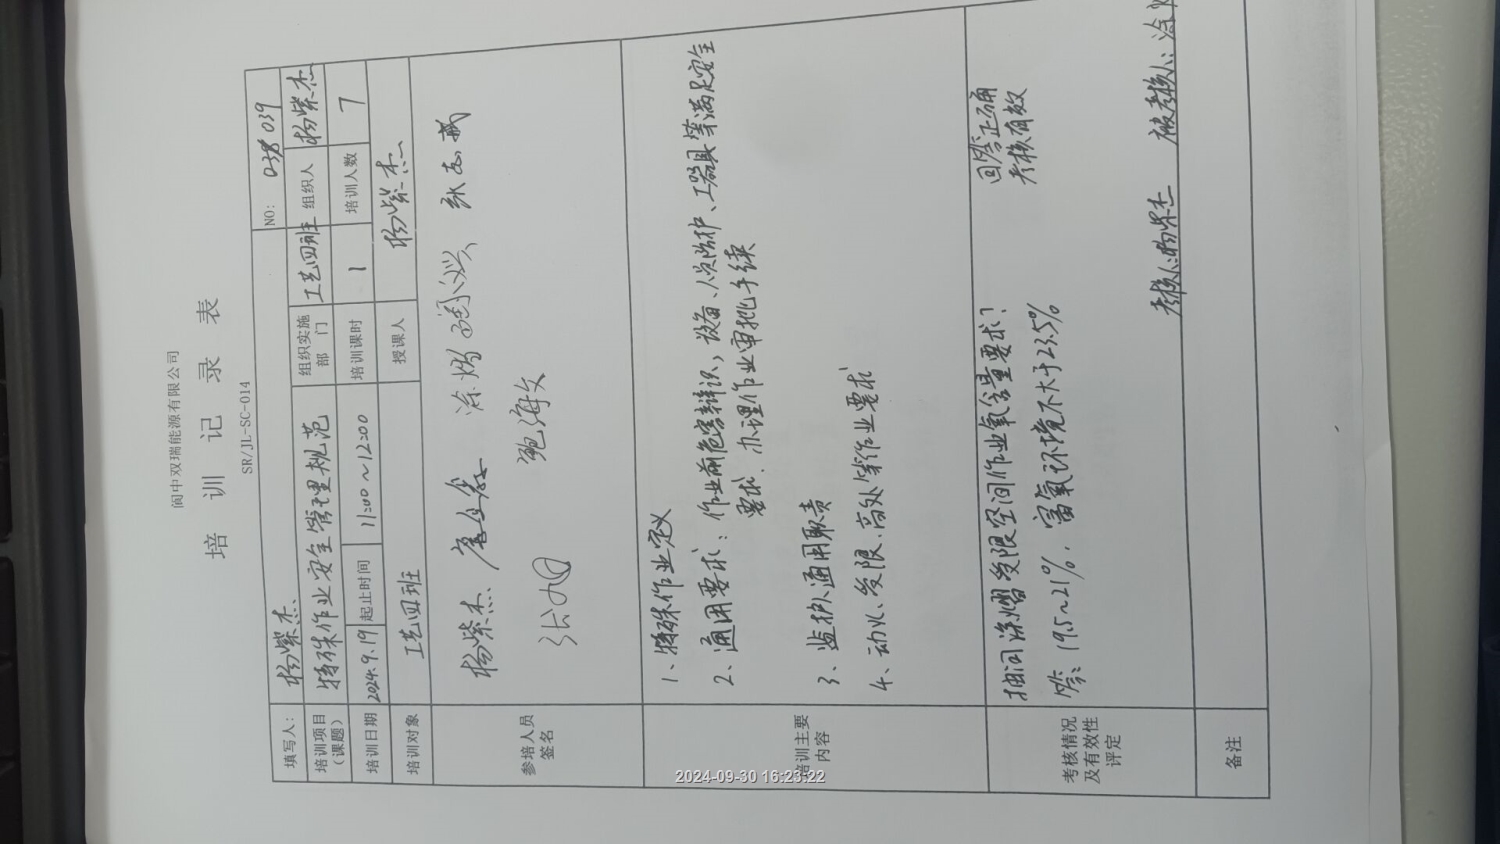 阆中双瑞能源有限公司
培训记录表
SR/JL-SC-014
填写人： 杨紫杰 NO: 039
培训项目（课题） 特殊作业安全管理规范 组织实施部门 工艺四班 组织人 杨紫杰
培训日期 2024.9.19 起止时间 11:00～12:00 培训课时 1 培训人数 7
培训对象 工艺四班 授课人 杨紫杰
参培人员签名
杨紫杰 涂熠 张志斌
张旭 鲍海文
培训主要内容
1、特殊作业定义
2、通用要求：作业前危害辩识，设备、人员防护、工器具等满足安全
要求、办理作业审批手续
3、监护人通用职责
4、动火、受限、高处等作业要求
考核情况及有效性评定
抽问涂熠受限空间作业氧含量要求？ 回答正确
答：19.5～21%，富氧环境不大于23.5% 考核有效
考核人：杨紫杰 被考核人：涂
备注
2024-09-30 16:23:22